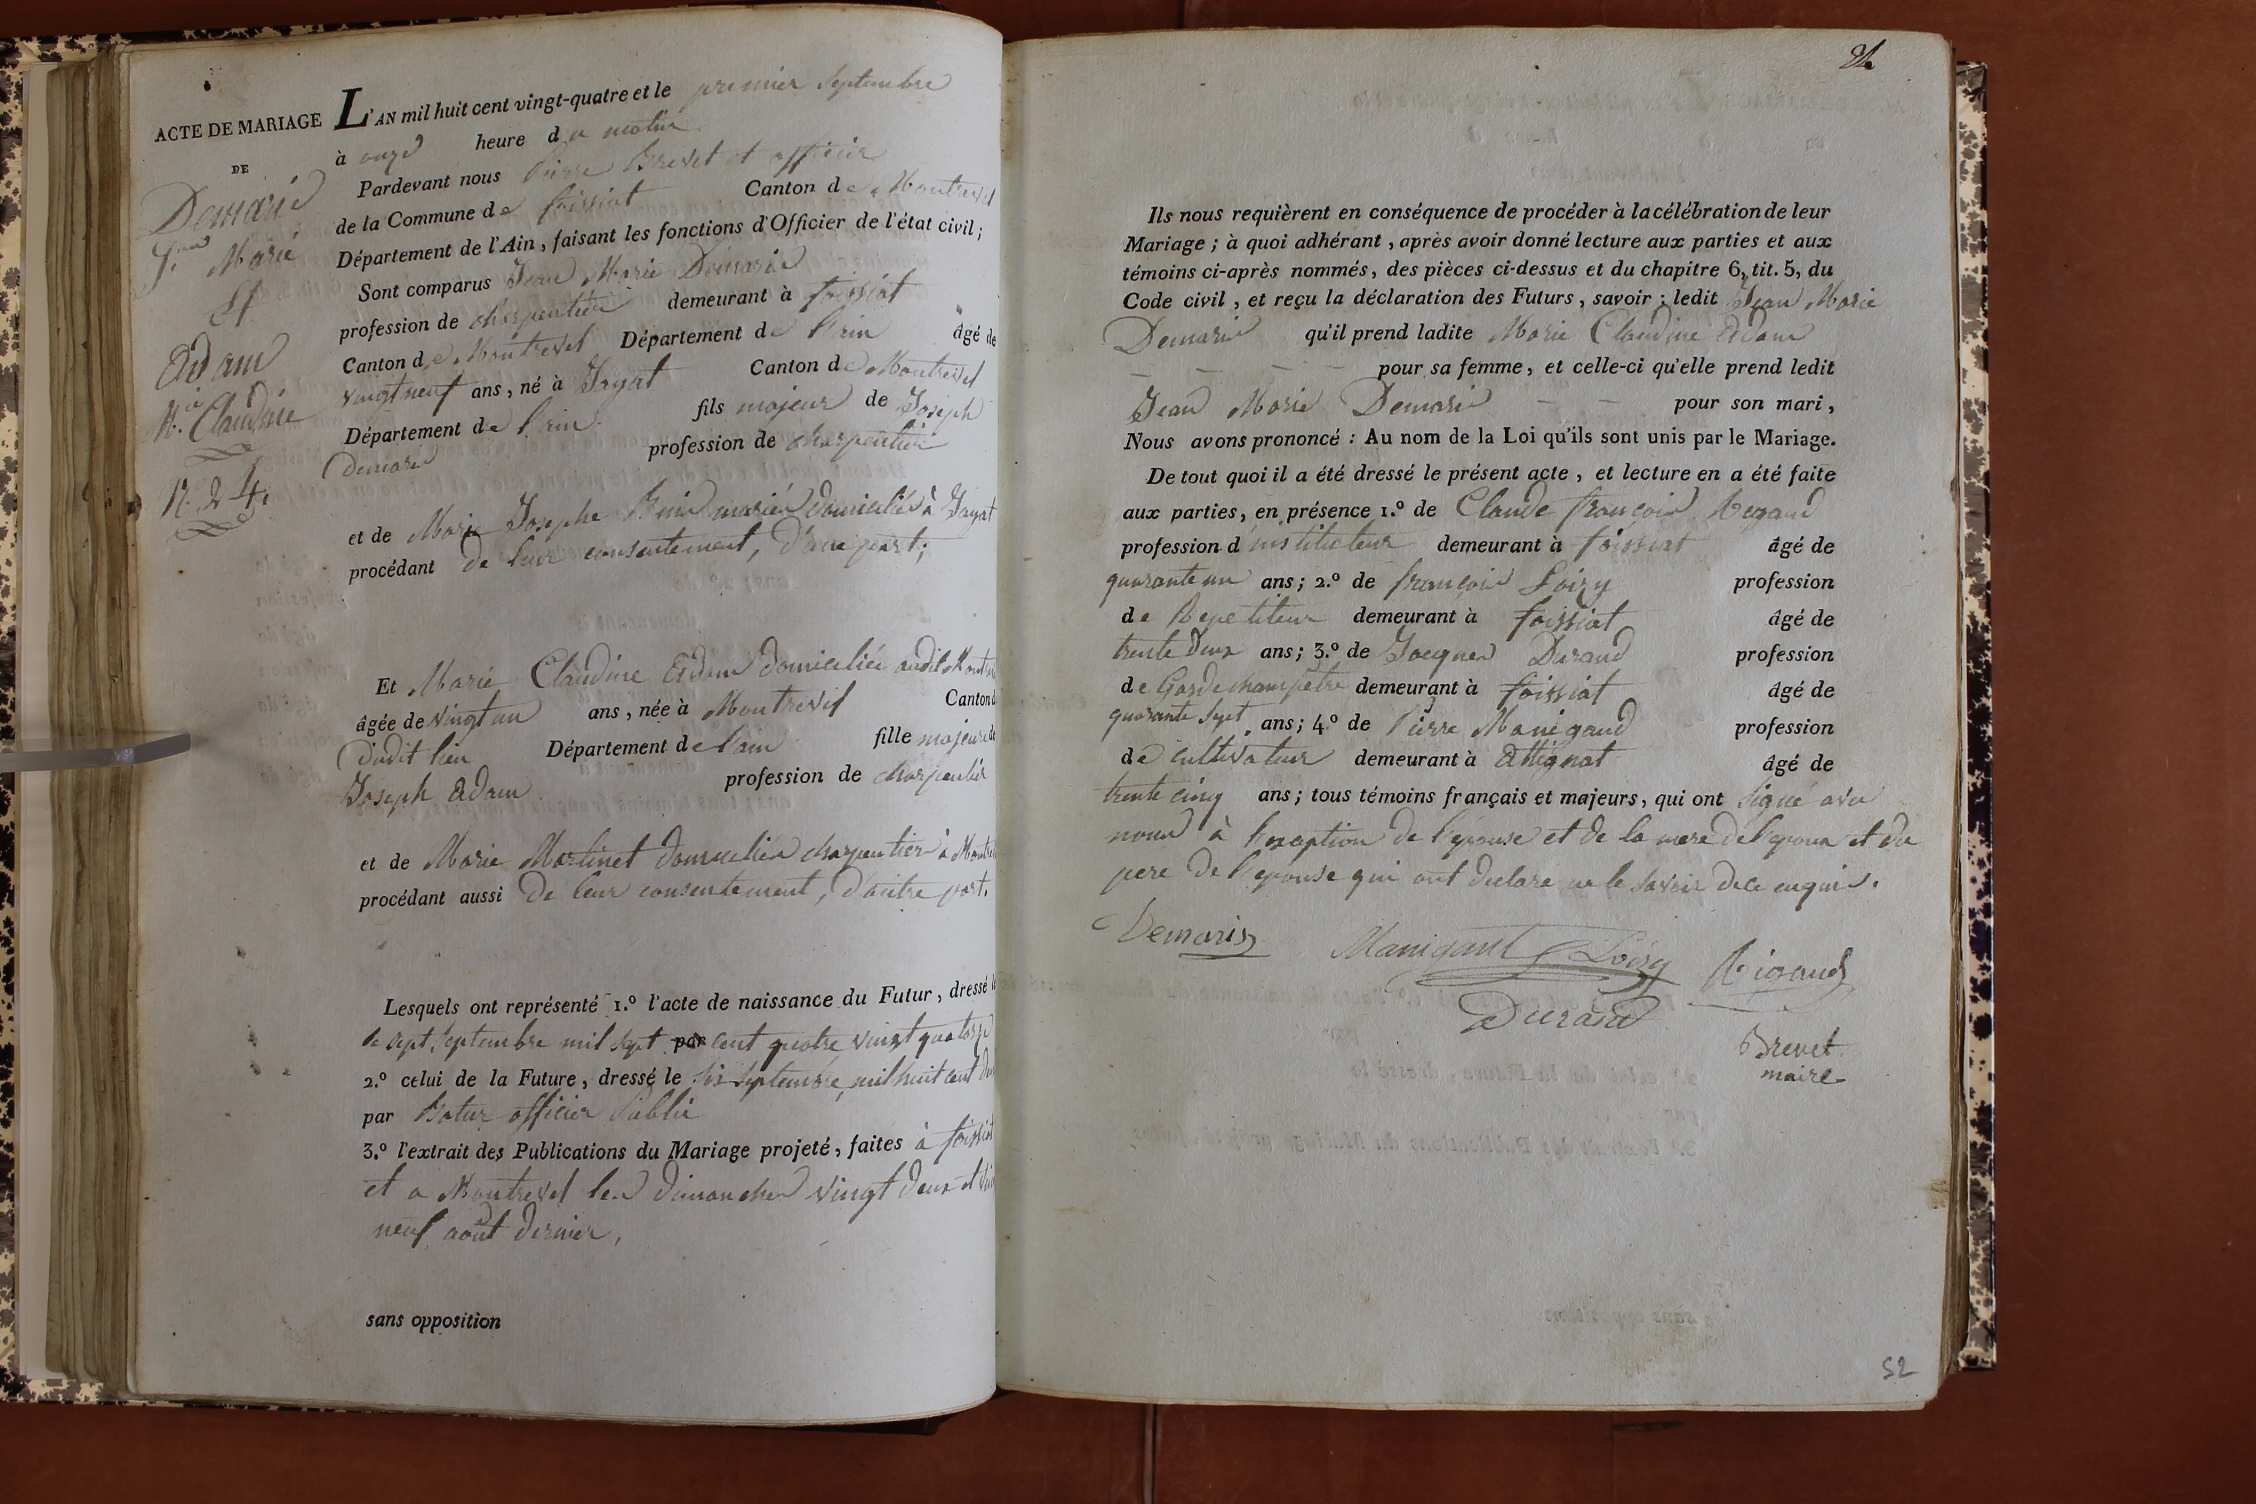 ACTE DE MARIAGE
DE
Demarie
J.n Marie
Et
Adam
M.ie Claudine
N.° 24.
L'AN mil huit cent vingt-quatre et le premier Septembre
à onze heure du matin
Pardevant nous Pierre Brevet et officier
de la Commune de foissiat Canton de Montrevel
Département de l'Ain, faisant les fonctions d'Officier de l'état civil;
Sont comparus Jean Marie Demarie
profession de charpentier demeurant à foissiat
Canton de Montrevel Département de l'ain âgé de
vingt neuf ans, né à Jayat Canton de Montrevel
Département de l'ain fils majeur de Joseph
Demarie profession de charpentier
et de Marie Josephe mariés domiciliés à Jayat
procédant de leur consentement, d'une part;
Et Marie Claudine Adam domiciliée audit
âgée de vingt un ans, née à Montrevel Canton
dudit lieu Département de l'ain fille majeure de
Joseph Adam profession de charpentier
et de Marie Martinet domiciliés charpentier à
procédant aussi de leur consentement, d'autre part.
Lesquels ont représenté 1.° l'acte de naissance du Futur, dressé le
le sept Septembre mil sept par cent quatre vingt quatorze
2.° celui de la Future, dressé le six Septembre, mil huit cent
par officier Public
3.° l'extrait des Publications du Mariage projeté, faites à foissiat
et a Montrevel les dimanches vingt deux et
neuf août dernier,
sans opposition
Ils nous requièrent en conséquence de procéder à la célébration de leur
Mariage; à quoi adhérant, après avoir donné lecture aux parties et aux
témoins ci-après nommés, des pièces ci-dessus et du chapitre 6, tit. 5, du
Code civil, et reçu la déclaration des Futurs, savoir: ledit Jean Marie
Demarie qu'il prend ladite Marie Claudine Adam
pour sa femme, et celle-ci qu'elle prend ledit
Jean Marie Demarie pour son mari,
Nous avons prononcé: Au nom de la Loi qu'ils sont unis par le Mariage.
De tout quoi il a été dressé le présent acte, et lecture en a été faite
aux parties, en présence 1.° de Claude françois Rigaud
profession d'instituteur demeurant à foissiat âgé de
quarante un ans; 2.° de françois Loisy profession
de Repetiteur demeurant à foissiat âgé de
trente deux ans; 3.° de Jacques Durand profession
de Garde champêtre demeurant à foissiat âgé de
quarante sept ans; 4.° de Pierre Manigand profession
de cultivateur demeurant à attignat âgé de
trente cinq ans; tous témoins français et majeurs, qui ont signé avec
nous à l'exception de l'épouse et de la mere de l'epoux et du
pere de l'epouse qui ont declare ne le savoir de ce enquis.
Demaris Manigant Loisy Rigaud
Durand
Brevet
maire
52